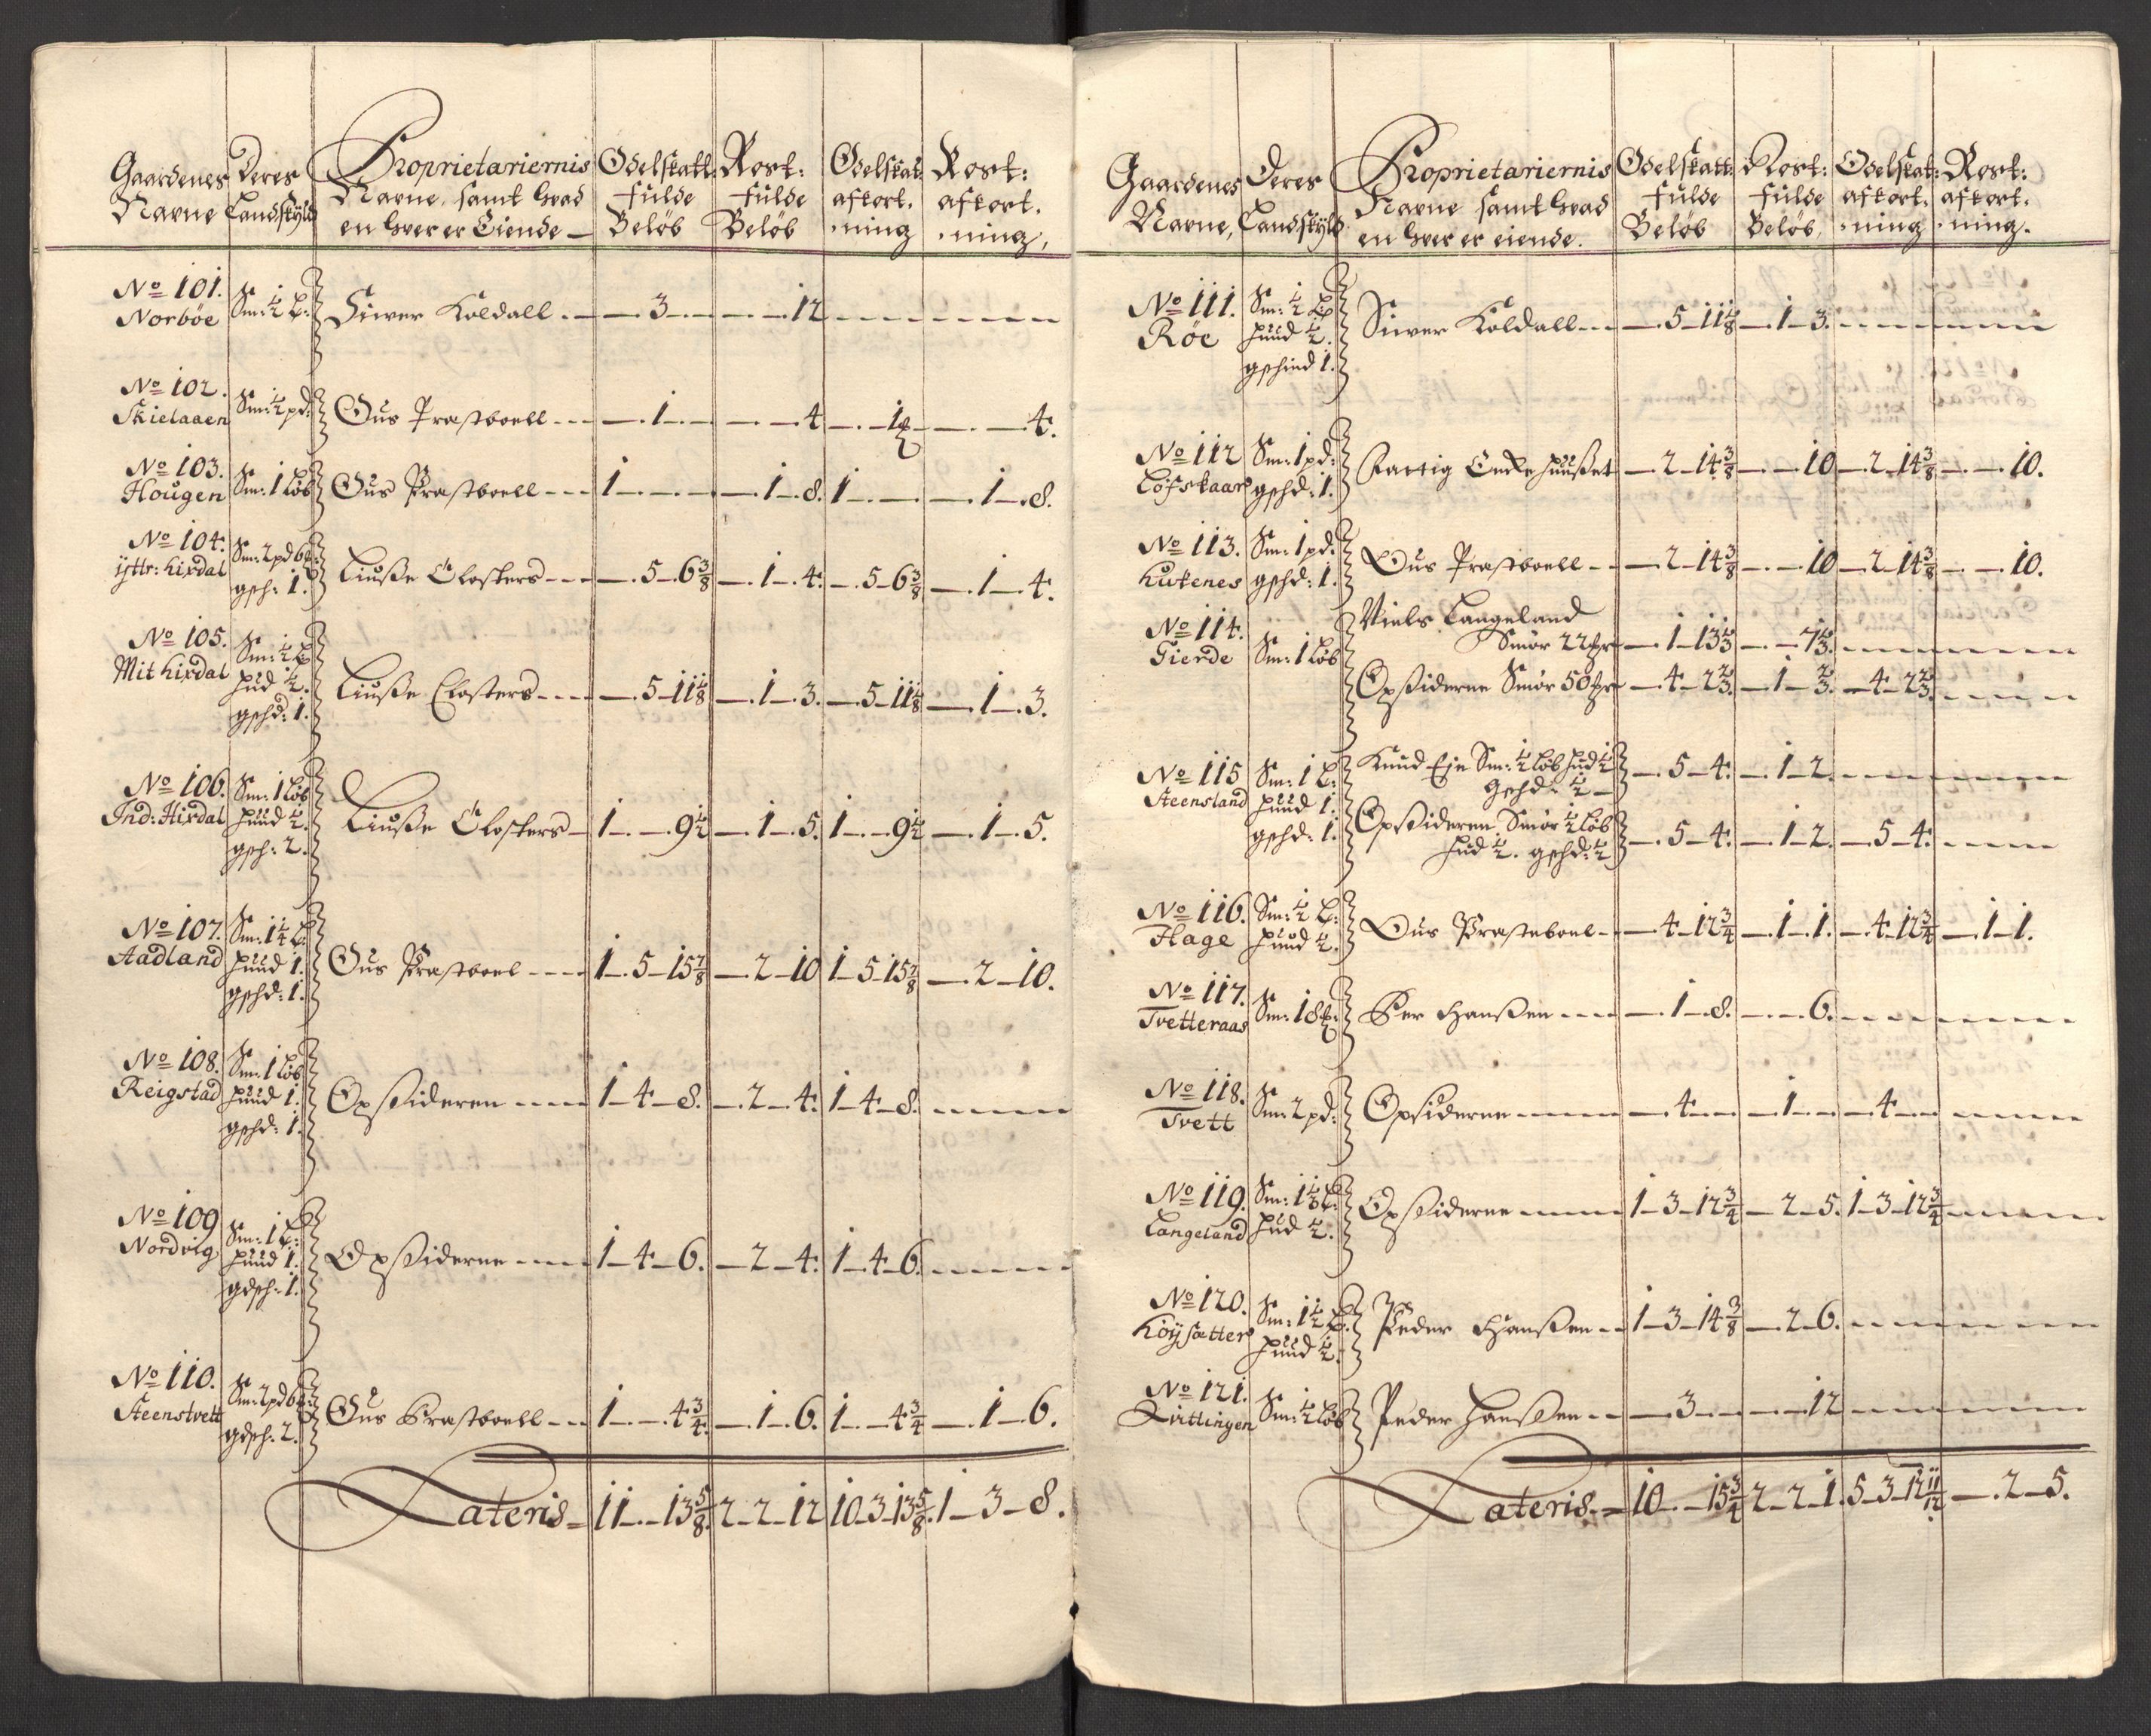 Gaardenes Navne | Deres Landskyld | Proprietariernis Navne, samt hvad en hver er Eiende | Odelskatt: fulde Beløb | Rost: fulde Beløb | Odelskat: afkort.ning | Rost: afkort.ning.
No 101. Norbøe | Sm: ½ L: | Siver Koldall | 3 | 12
No 102. Skielaaen | Sm: ½ pd: | Ous Præstboell | 1 | 4 | 1 | 4.
No 103. Hougen | Sm: 1 Løb | Ous Præstboell | 1 | 1-8. | 1 | 1-8.
No 104. ijttr: hixdal | Sm: 2 pd 6 gsch: 1. | Liusse Closters | 5-6 3/8 | 1-4. | 5-6 3/8 | 1-4.
No 105. Mit hixdal | Sm: ½ L hud ½. gschd: 1. | Liusse Closters | 5-11 1/8 | 1-3. | 5-11 1/8 | 1-3.
No 106. Ind: Hixdal | Sm: 1 Løb huud ½. gsch: 2. | Liusse Closters | 1-9½ | 1-5. | 1-9½ | 1-5.
No 107. Aadland | Sm: 1¼ L: huud 1. gschd: 1. | Ous Præstboel | 1-5-15 7/8 | 2-10 | 1-5-15 7/8 | 2-10.
No 108. Reigstad | Sm: 1 Løb huud 1. gschd: 1. | Opsideren | 1-4-8. | 2-4. | 1-4-8.
No 109 Nordvig | Sm: 1 L: huud 1. gdsch: 1. | Opsiderne | 1-4-6. | 2-4. | 1-4-6.
No 110. Steenstvett | Sm: 2 pd 6 gdsch: 2. | Ous Præstboell | 1-4¾ | 1-6. | 1-4¾ | 1-6.
Lateris | 11-13 5/8. | 2-2-12 | 10-3-13 5/8. | 1-3-8.
Gaardenes Navne, | Deres Landskyld | Proprietariernis Navne samt hvad en hver er eiende. | Odelskatt: fulde Beløb | Rost: fulde Beløb, | Odelskat: afkort.ning | Rost: afkort.ning.
No 111. Røe | Sm: ½ L huud ½. gschind 1. | Siver Koldall | 5-11 1/8 | 1-3.
No 112 Løfskaar | Sm: 1 pd: gschd: 1. | Fattig Encke huusset | 2-14 3/8 | 10 | 2-14 3/8 | 10.
No 113. hukenes | Sm: 1 pd. gschd: 1. | Ous Præstboell | 2-14 3/8 | 10 | 2-14 3/8 | 10.
No 114. Gierde | Sm: 1 Løb | Niels Langeland
Smør 22 | 1-13 1/3 | 7 1/3.
Opsiderne Smør 50 | 4-2 2/3. | 1-2/3. | 4-2 2/3.
No 115 Steensland | Sm: 1 L: huud 1. gschd: 1. | Knud Eie Sm: ½ Løb hud ½ gschd: ½ | 5-4. | 1-2.
Opsideren Smør ½ Løb hud ½. gschd: ½ | 5-4. | 1-2. | 5-4.
No 116. Hage | Sm: ½ L: huud ½. | Ous Præsteboel | 4-12¾ | 1-1. | 4-12¾ | 1-1.
No 117. Tvetteraas | Sm: 18 | Per Hanssen | 1-8. | 6.
No 118. Tvett | Sm: 2 pd: | Opsiderne | 4 | 1 | 4
No 119. Langeland | Sm: 1 1/3 L: hud ½. | Opsiderne | 1-3-12¾ | 2-5. | 1-3-12¾
No 120. høysætter | Sm: 1½ L. huud ½. | Peder Hanssen | 1-3-14 3/8 | 2-6.
No 121. Qvittingen | Sm: ½ Løb | Peder Hanssen | 3 | 12
Lateris | 10-15¾ | 2-2-1. | 5-3-12 11/12 | 2-5.